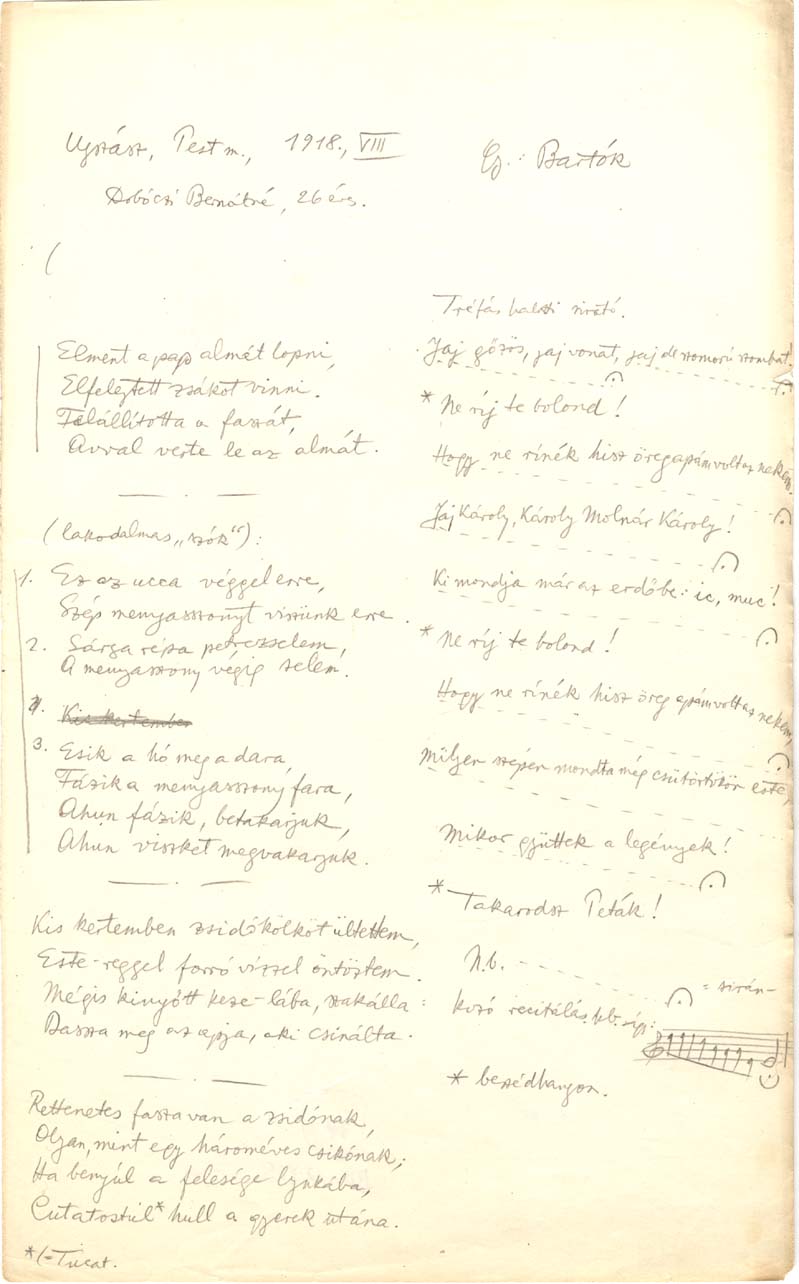 Ujszász, Pest m., 1918., VIII
Gy.: Bartók
Dobóczi Bernátné, 26 éves.
(
Elment a pap almát lopni,
Elfelejtett zsákot vinni.
Felállította a faszát,
Avval verte le az almát.
(lakodalmas „szók"):
1. Ez az ucca véggel erre,
Szép menyasszonyt viszünk erre.
2. Sárga répa petrezselem,
A menyasszony végig selem.
Kis kertember
3. Esik a hó meg a dara,
Fázik a menyasszony fara,
Ahun fázik, betakarjuk,
Ahun viszket megvakarjuk.
Kis kertemben zsidókölköt ültettem,
Este-reggel forró vízzel öntöztem.
Mégis kinyőtt keze-lába, szakálla:
Bassza meg az apja, aki csinálta.
Rettenetes fasza van a zsidónak,
Olyan, mint egy hároméves csikónak;
Ha benyúl a felesége lyukába,
Cutatostúl* hull a gyerek utána.
*(=Tucat.
Tréfás halotti sirató.
Jaj gőzös, jaj vonat, jaj de szomorú szombat!
* Ne ríj te bolond!
Hogy ne rínék hisz öregapám volt az nekem.
Jaj Károly, Károly Molnár Károly!
Ki mondja már az erdőbe: ic, muc!
* Ne ríj te bolond!
Hogy ne rínék hisz öreg apám volt az nekem,
Milyen szépen mondta még csütörtökön este,
Mikor gyüttek a legények!
* Takarodsz Peták!
N.b. = sirán-
kozó recitálás, kb. így:
* beszédhangon.